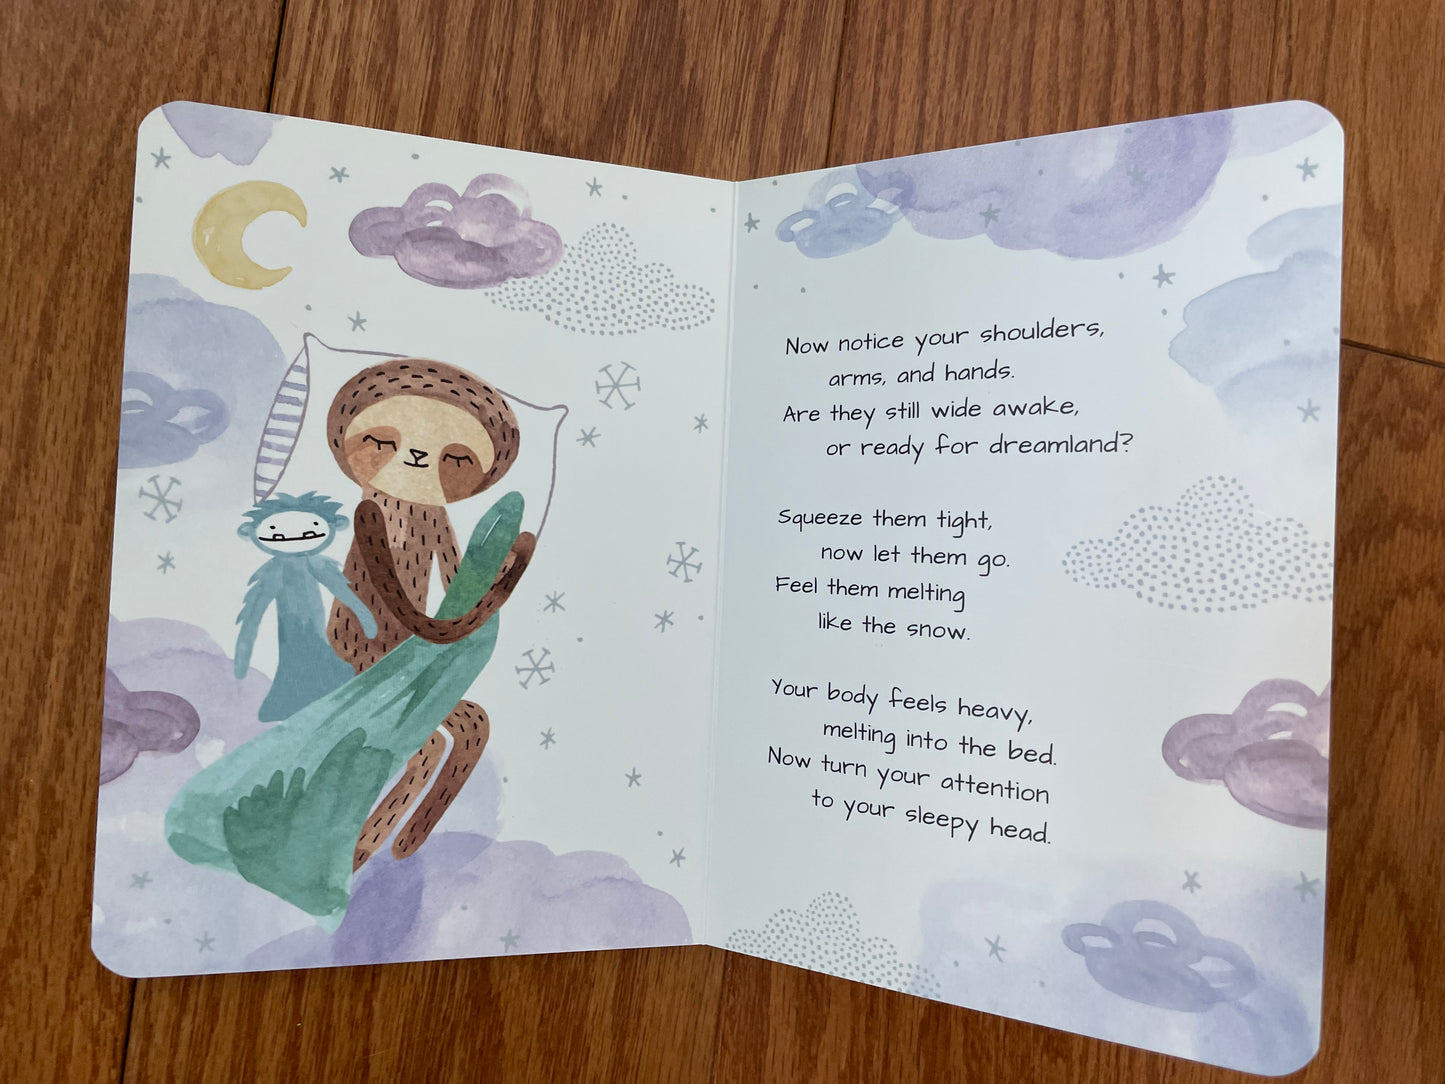 Now notice your shoulders,
arms, and hands.
Are they still wide awake,
or ready for dreamland?
Squeeze them tight,
now let them go.
Feel them melting
like the snow.
Your body feels heavy,
melting into the bed.
Now turn your attention
to your sleepy head.